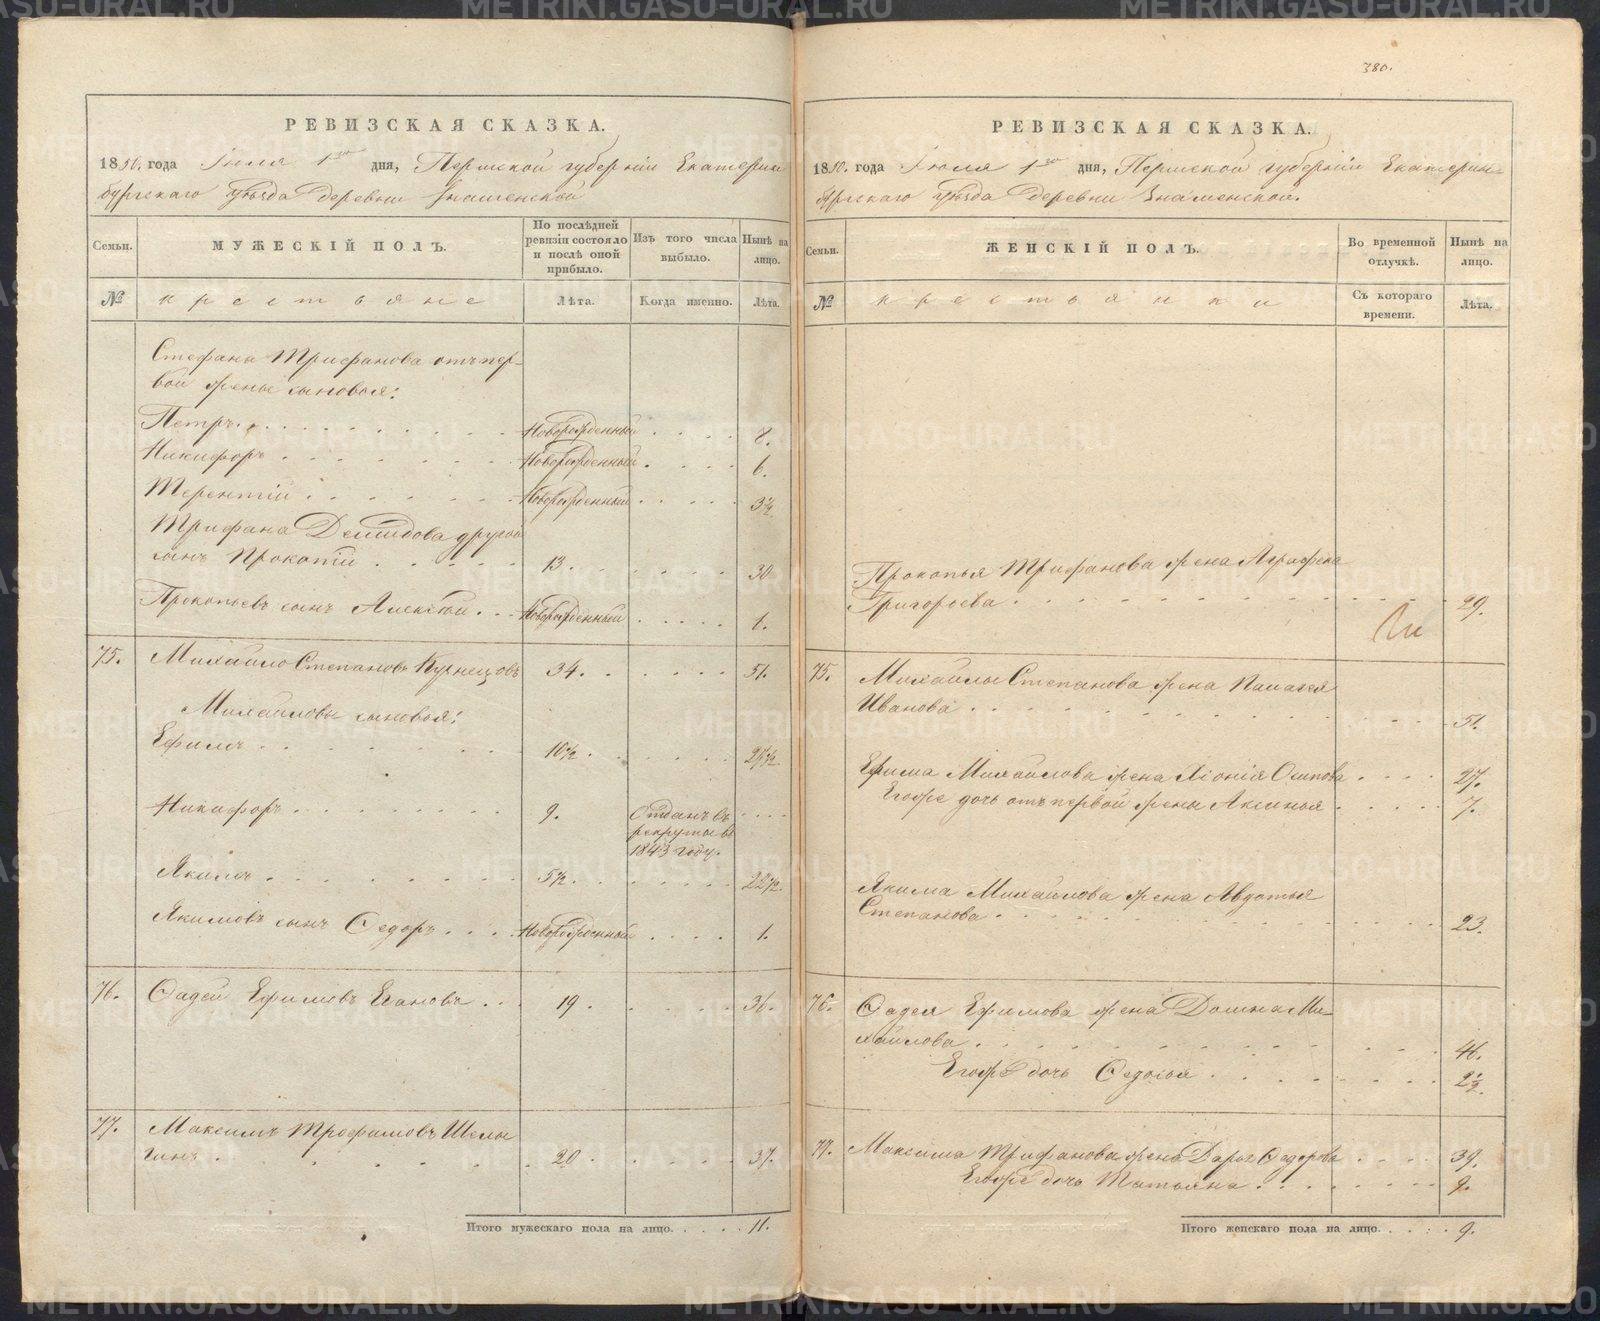 380.
РЕВИЗСКАЯ СКАЗКА.
1850. года Іюля 1го дня, Пермской губерніи Екатерин
бургскаго уѣзда деревни Знаменской
Семьи.
МУЖЕСКІЙ ПОЛЪ.
По послѣдней
ревизіи состояло
и послѣ оной
прибыло.
Изъ того числа
выбыло.
Нынѣ на
лицо.
№
крестьяне
Лѣта.
Когда именно.
Лѣта.
Стефана Трифанова отъ пер-
вой жены сыновья:
Петръ. Новорожденный 8.
Никифоръ Новорожденный 6.
Терентій Новорожденный 3½
Трифана Демидова другой
сынъ Прокопій 13. 30
Прокопьевъ сынъ Алексѣй Новорожденный 1.
75. Михайло Степановъ Кузнецовъ 34. 51.
Михайловы сыновья:
Ефимъ 10½ 27½
Никифоръ 9. Отданъ въ
рекруты въ
1843 году.
Якимъ 5½ 22½
Якимовъ сынъ Ѳедоръ Новорожденный 1.
76. Ѳадей Ефимовъ Егановъ 19. 36.
77. Максимъ Трофимовъ Шелы
гинъ 20. 37.
Итого мужескаго пола на лицо. 11.
РЕВИЗСКАЯ СКАЗКА.
1850. года Іюля 1го дня, Пермской губерніи Екатерин-
бургскаго уѣзда деревни Знаменской.
Семьи.
ЖЕНСКІЙ ПОЛЪ.
Во временной
отлучкѣ.
Нынѣ на
лицо.
№
крестьянки
Съ котораго
времени.
Лѣта.
Прокопья Трифанова жена Аграфена
Григорьева 29.
75. Михайлы Степанова жена Палагея
Иванова 51.
Ефима Михайлова жена Хіонія Осипова 27.
Егоже дочь отъ первой жены Аксинья 7.
Якима Михайлова жена Авдотья
Степанова 23.
76. Ѳадея Ефимова жена Домна Ми-
хайлова 46.
Егоже дочь Ѳедосья 2½
77. Максима Трифанова жена Дарья Ѳедорова 39.
Егоже дочь Татьяна 9.
Итого женскаго пола на лицо. 9.
METRIKI.GASO-URAL.RU